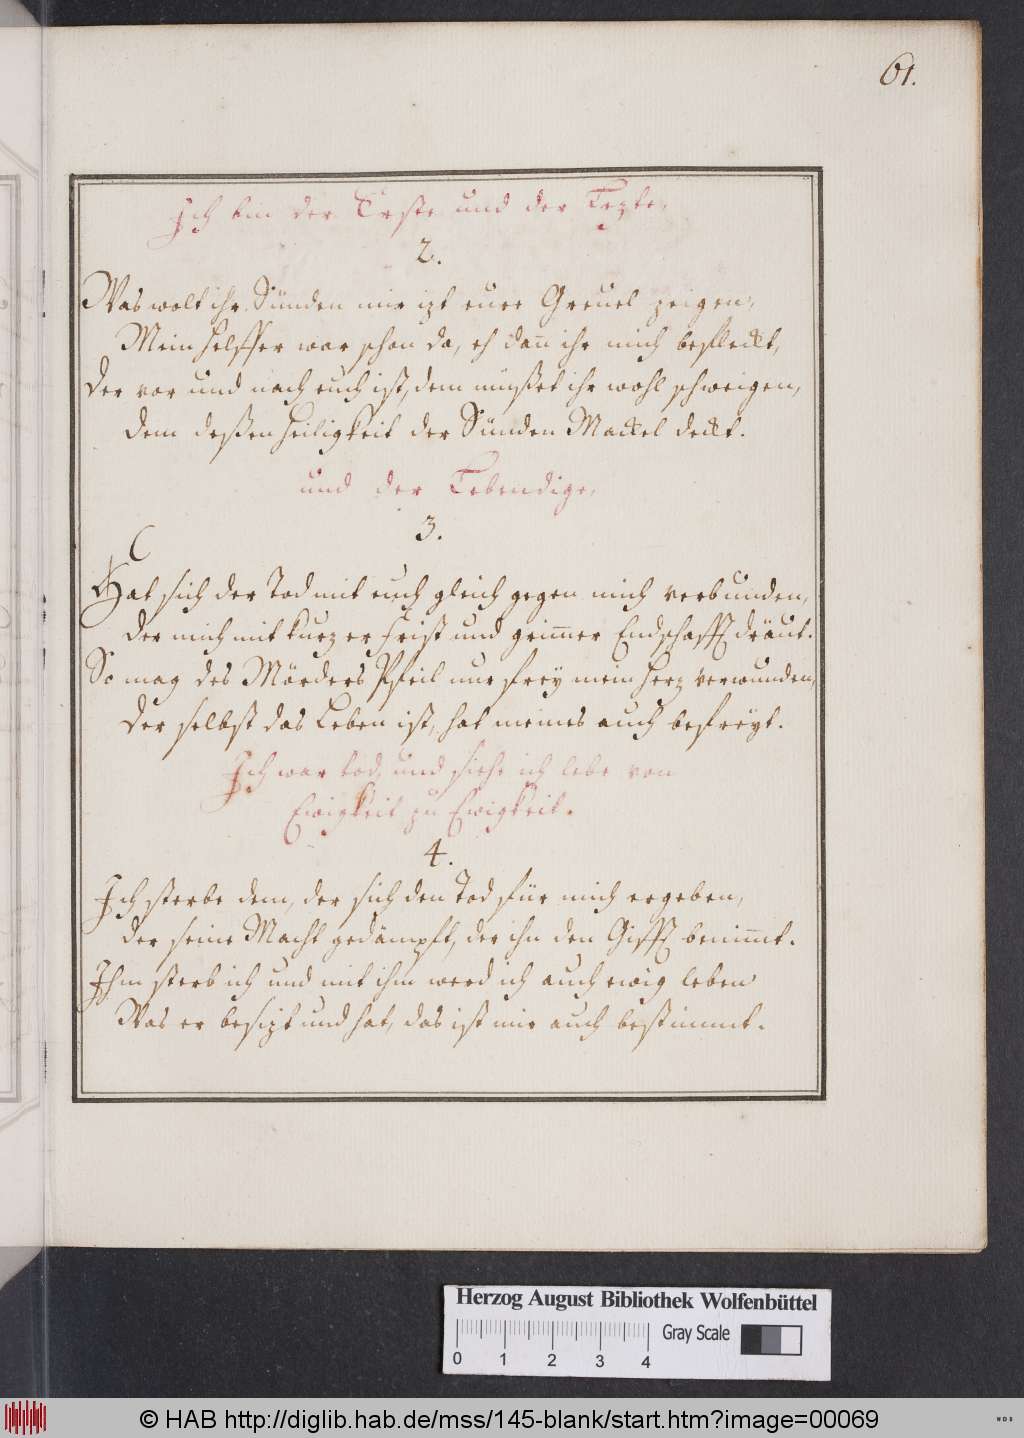 61.
Ich bin der Erste und der Lezte,
2.
Was wolt ihr Sünden mir izt eure Greuel zeigen,
Mein Helffer war schon da, eh dan̄ ihr mich befleckt,
Der vor und nach euch ist, dem müßet ihr wohl schweigen,
Dem deßen Heiligkeit der Sünden Mackel deckt.
und der Lebendige,
3.
Hat sich der Tod mit euch gleich gegen mich verbunden,
Der mich mit kurzer Frist und grim̄er Endschafft dräut.
So mag des Mörders Pfeil nur frey mein Herz verwunden,
Der selbst das Leben ist, hat meines auch befreyt.
Ich war tod, und siehe ich lebe von
Ewigkeit zu Ewigkeit.
4.
Ich sterbe dem, der sich den Tod für mich ergeben,
Der seine Macht gedämpft, der ihn den Gifft benim̄t.
Ihm sterb ich und mit ihm werd ich auch ewig leben
Was er besizt und hat, das ist mir auch bestimmt.
Herzog August Bibliothek Wolfenbüttel
Gray Scale
0 1 2 3 4
© HAB http://diglib.hab.de/mss/145-blank/start.htm?image=00069